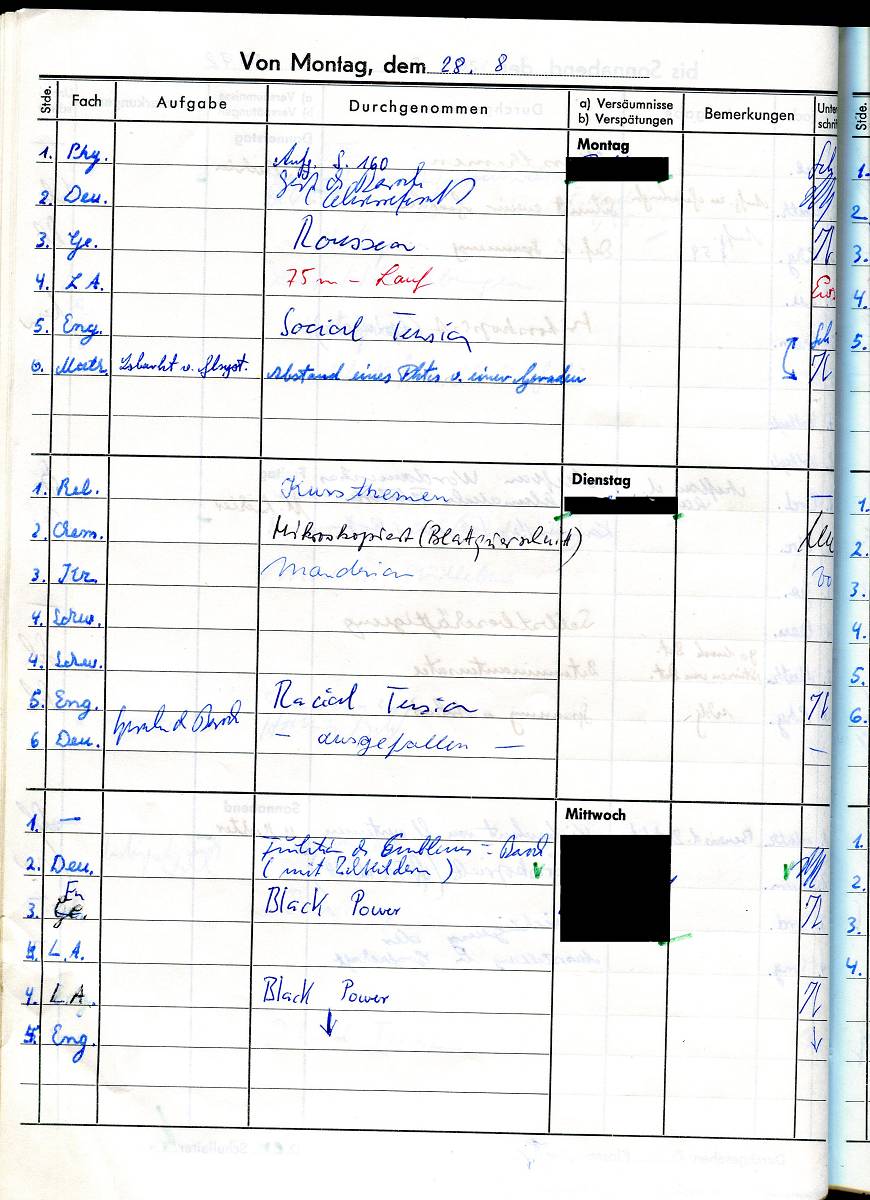 Von Montag, dem 28. 8
Stde. Fach Aufgabe Durchgenommen a) Versäumnisse b) Verspätungen Bemerkungen Unter schri
Montag
1. Phy. Aufg. S. 160
2. Deu. (Lehrerreferat)
3. Ge. Rousseau
4. L A. 75 m - Lauf
5. Eng. Social Tension
6. Math. Abstand eines Pktes v. einer Geraden
Dienstag
1. Rel. Kursthemen
2. Chem. Mikroskopiert (Blattquerschnitt)
3.
4. Schw.
4. Schw.
5. Eng. Racial Tension
6 Deu. - ausgefallen -
Mittwoch
1. -
2. Deu. Barock
(mit Zeltbildern)
3. En Ge. Black Power
4. L.A.
4. L A. Black Power
5. Eng. ↓
Stde.
1.
2
3.
4.
5.
1.
2.
3.
4.
5.
6.
1.
2.
3.
4.